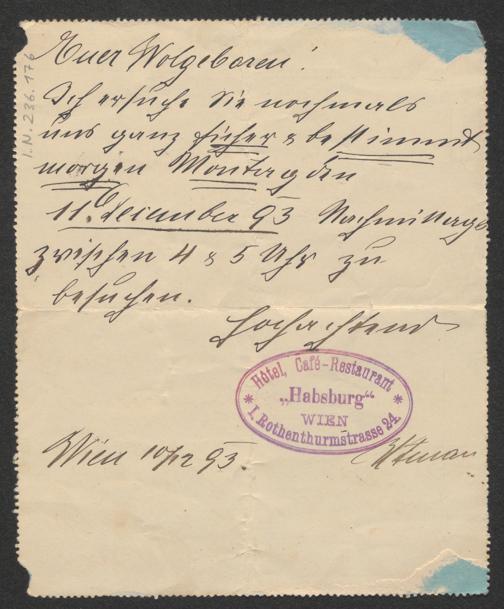 Euer Wolgeboren!
Ich ersuche Sie nochmals
uns ganz sicher & bestimmt
morgen Montag den
11. December 93 Nachmittags
zwischen 4 & 5 Uhr zu
besuchen.
Hochachtend
Hôtel, Café-Restaurant
„Habsburg“
WIEN
I. Rothenthurmstrasse 24.
Wien 10/12 93.
I.N. 236.176